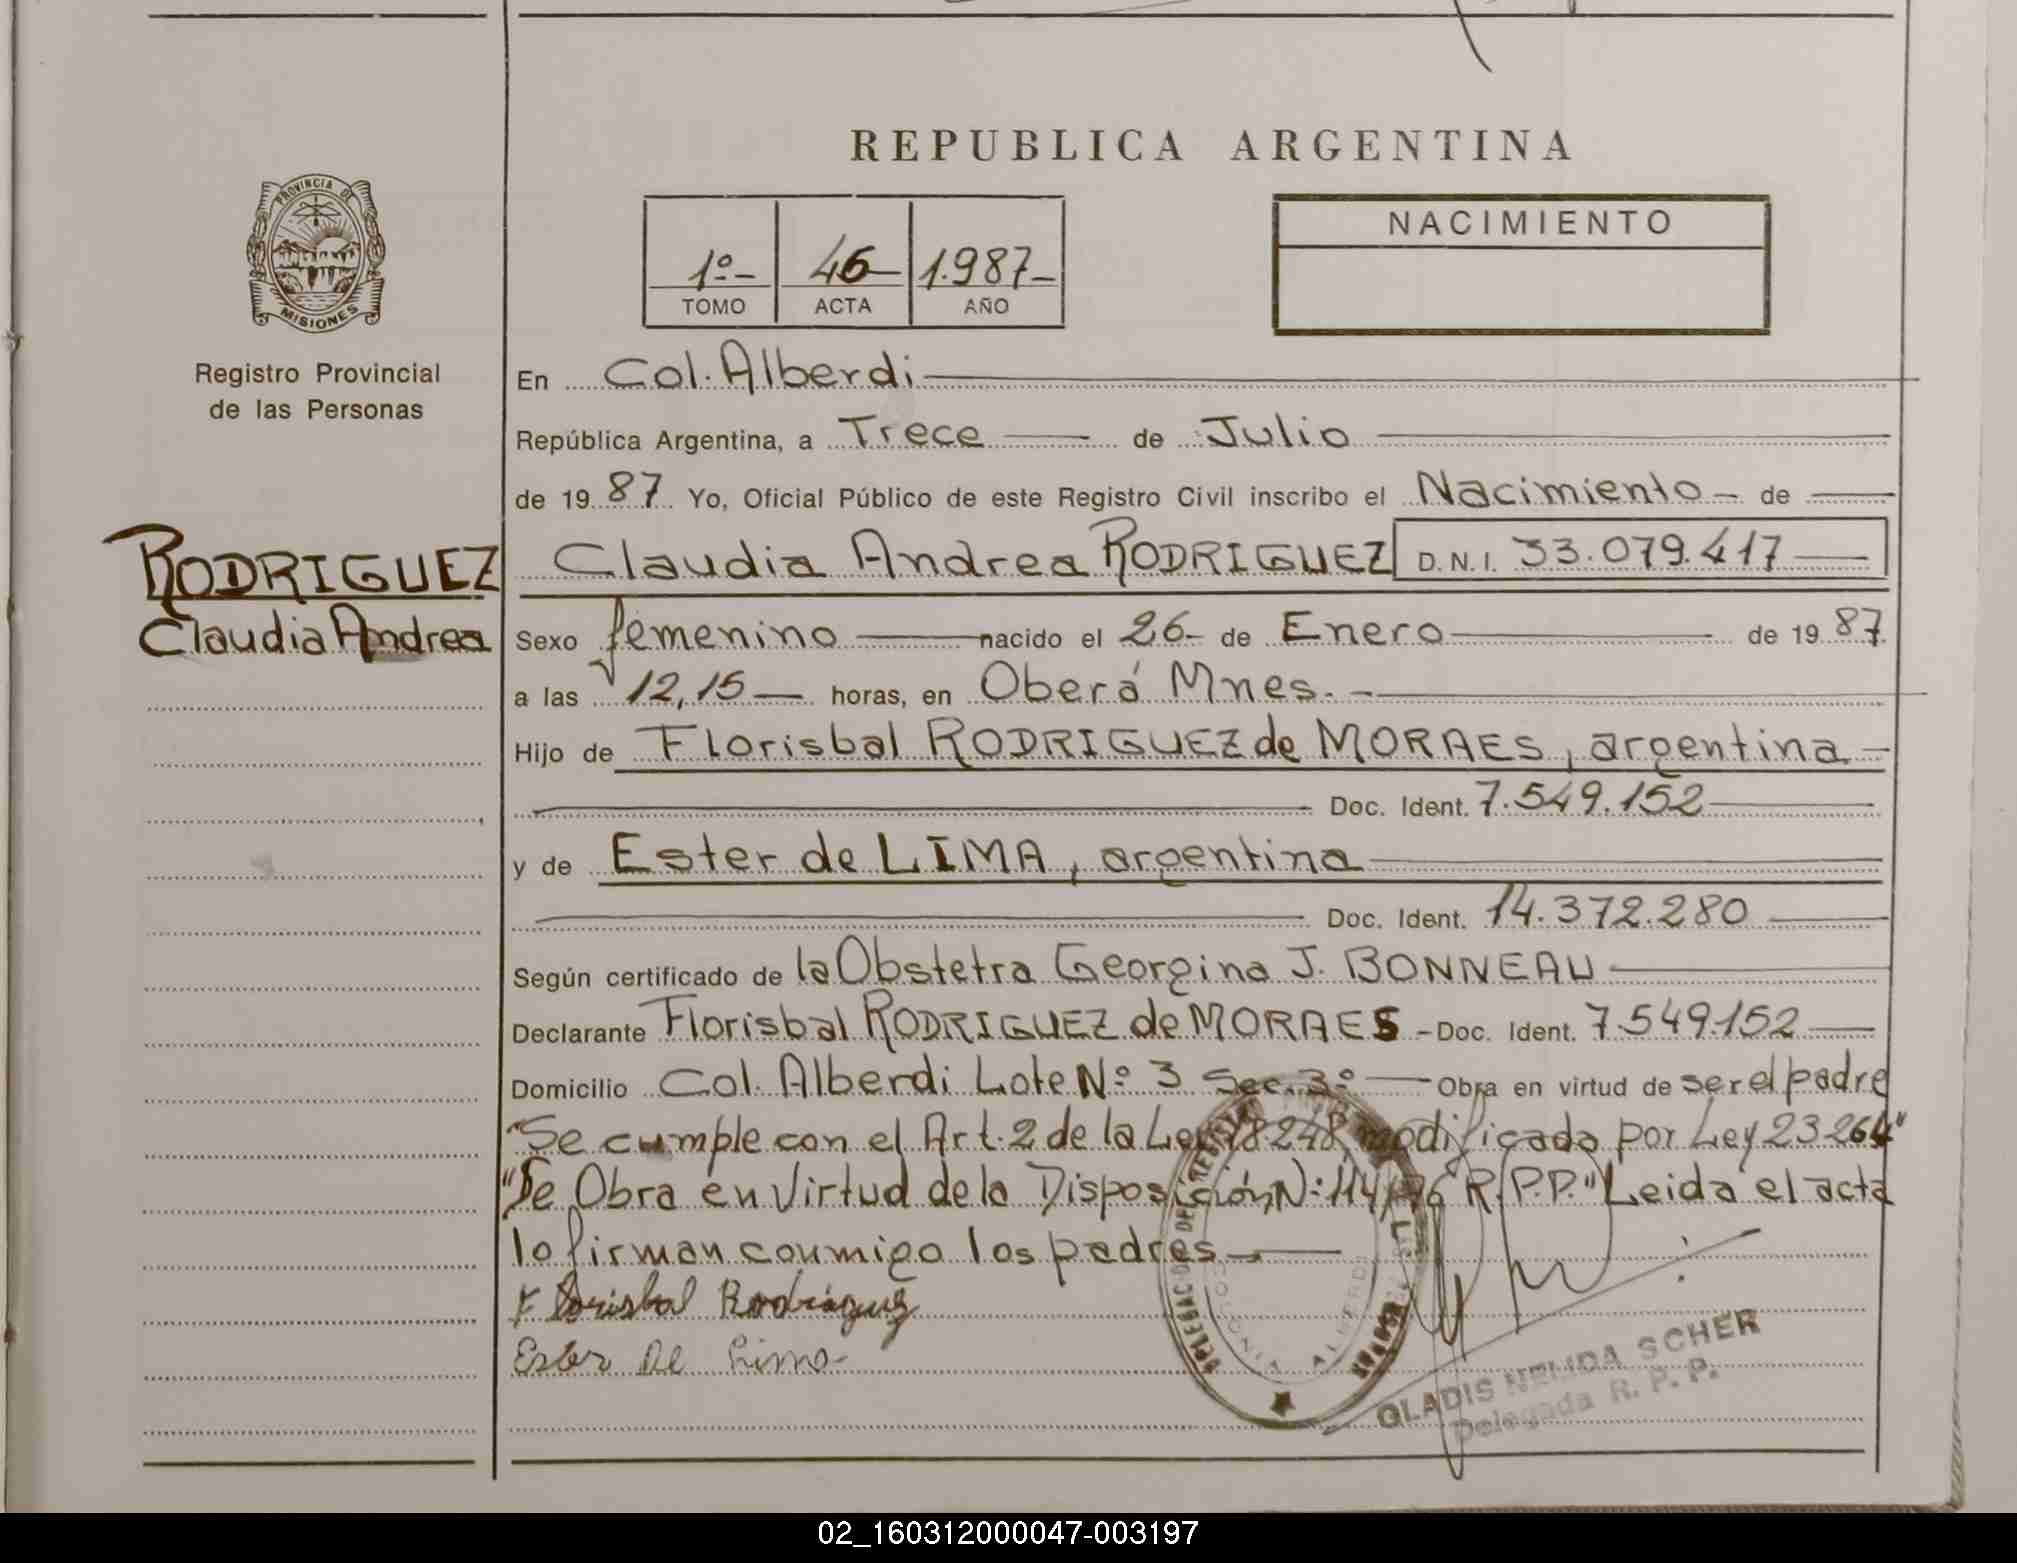 REPUBLICA ARGENTINA
PROVINCIA DE
MISIONES
Registro Provincial
de las Personas
1º-
TOMO
46-
ACTA
1.987-
AÑO
NACIMIENTO
RODRIGUEZ
Claudia Andrea
En Col. Alberdi
República Argentina, a Trece de Julio
de 19 87 Yo, Oficial Público de este Registro Civil inscribo el Nacimiento - de
Claudia Andrea RODRIGUEZ D.N.I. 33.079.417
Sexo femenino nacido el 26- de Enero de 19 87
a las 12,15 horas, en Oberá Mnes.
Hijo de Florisbal RODRIGUEZ de MORAES, argentina
Doc. Ident. 7.549.152
y de Ester de LIMA, argentina
Doc. Ident. 14.372.280
Según certificado de la Obstetra Georgina J. BONNEAU
Declarante Florisbal RODRIGUEZ de MORAES - Doc. Ident. 7.549.152
Domicilio Col. Alberdi Lote Nº 3 Sec. 3º Obra en virtud de ser el padre
"Se cumple con el Art. 2 de la Ley 18248 modificado por Ley 23264"
"Se Obra en Virtud de la Disposición Nº 114/76 R.P.P." Leida el acta
lo firman counmigo los padres
Florisbal Rodriguez
Ester De Lima-
COLONIA ALBERDI
GLADIS NELIDA SCHER
Delegada R. P. P.
02_160312000047-003197